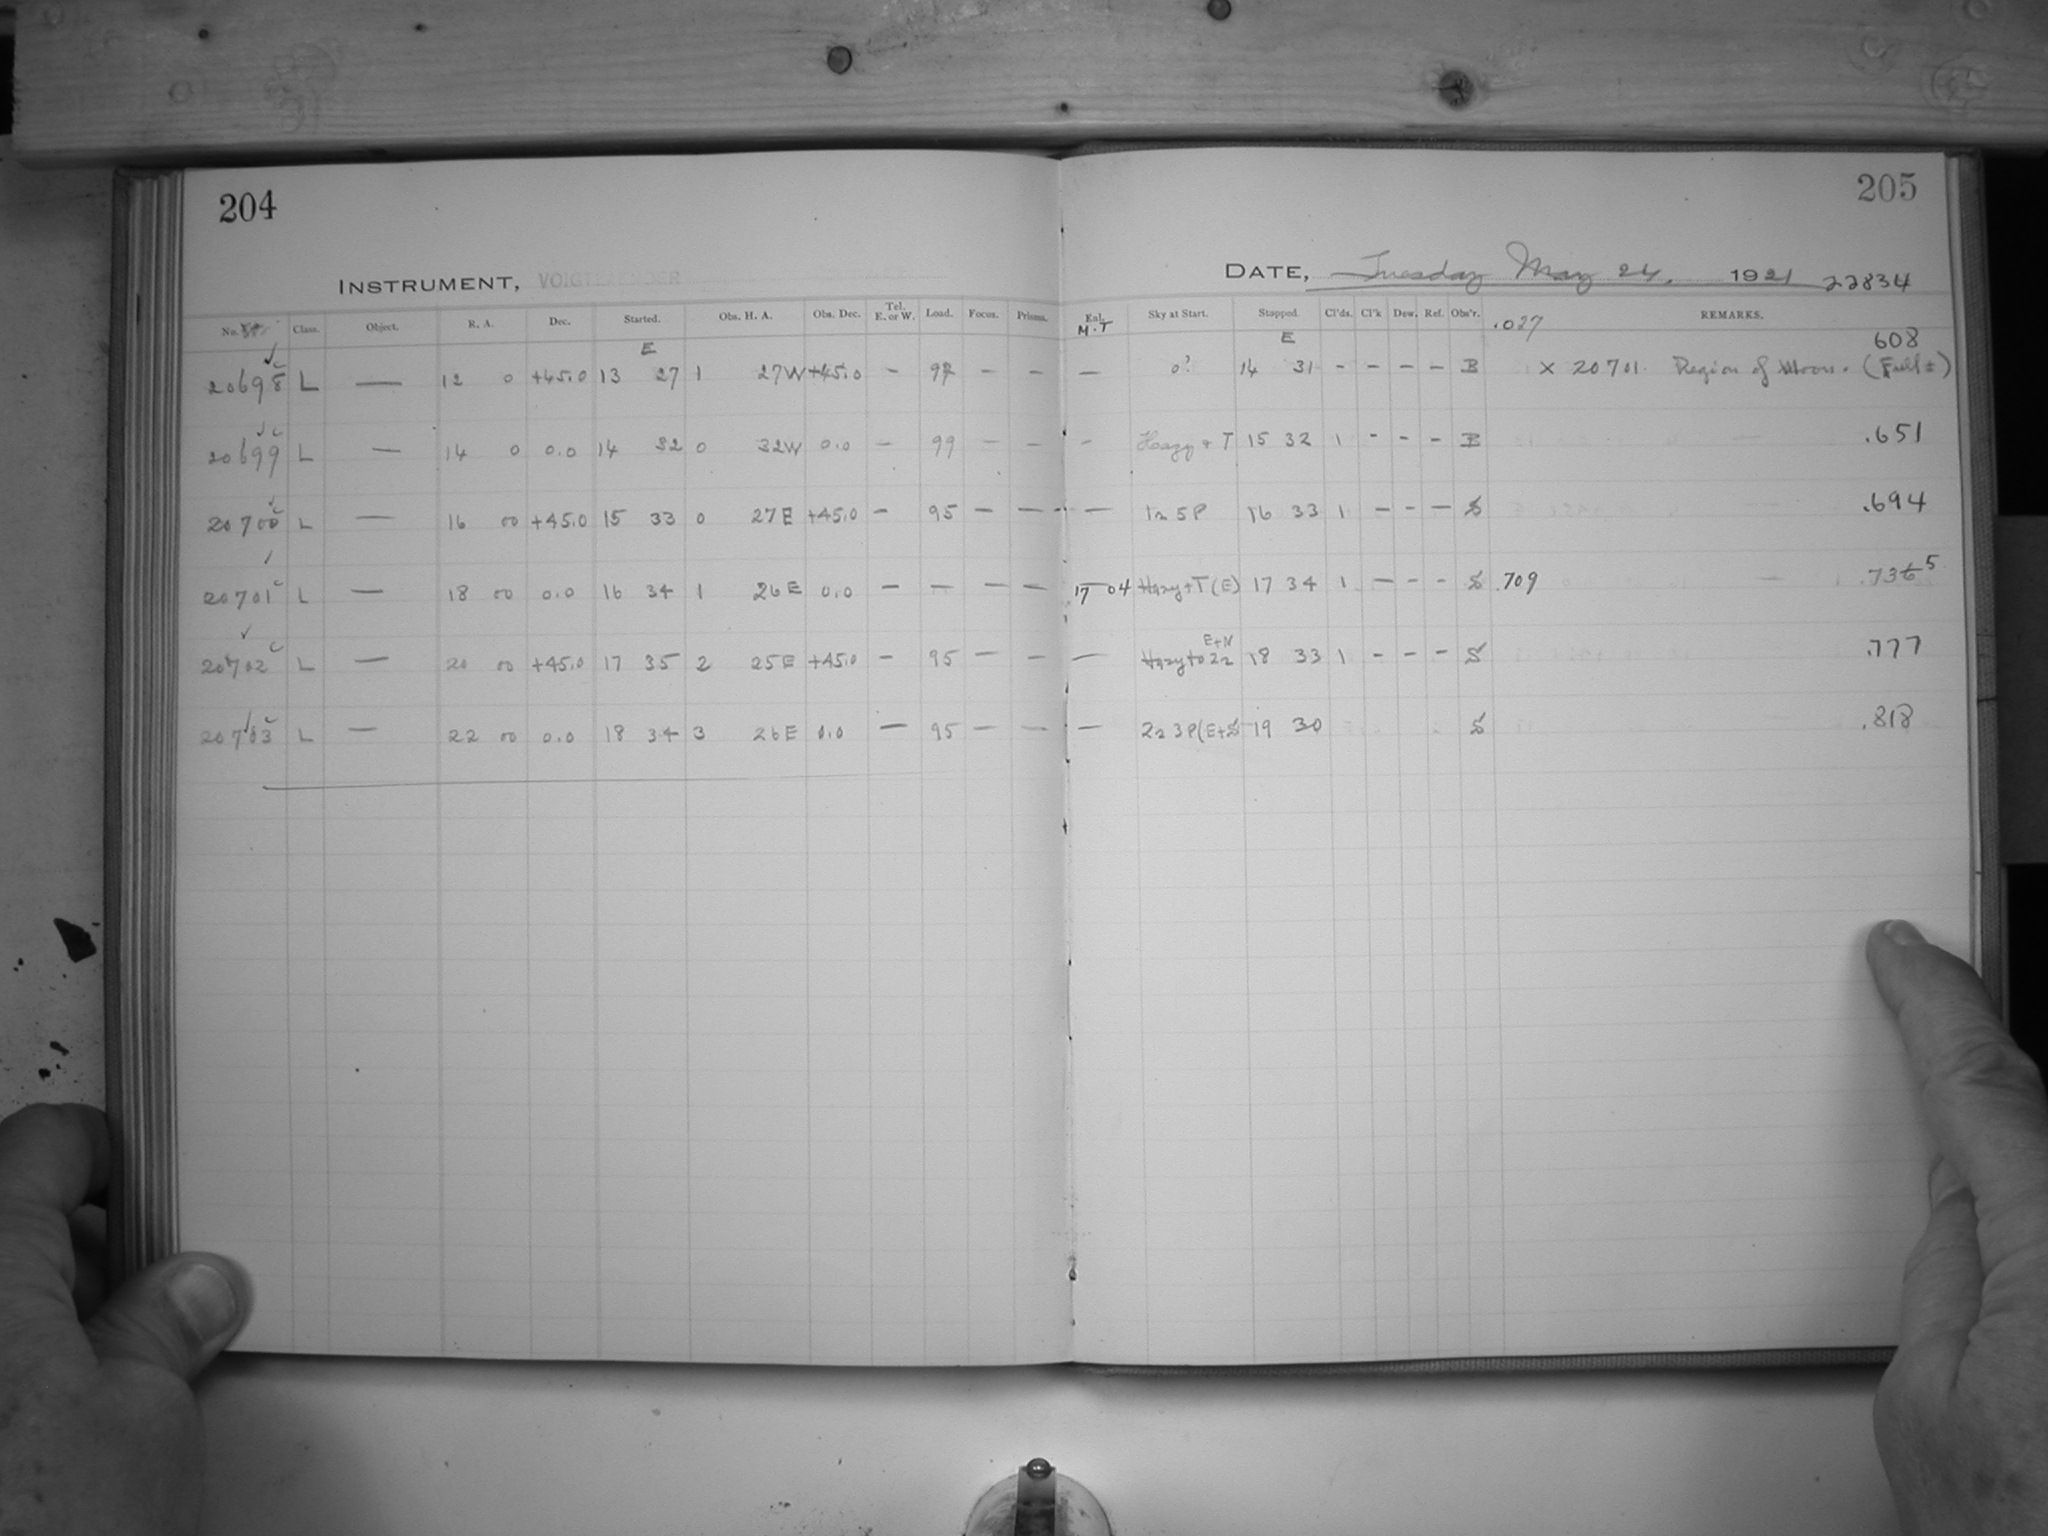 204
205
INSTRUMENT, VOIGTLAENDER
DATE, Tuesday May 24, 1921 22834
No. Class. Object. R. A. Dec. Started. Obs. H. A. Obs. Dec. Tel. E. or W. Load. Focus. Prisms. Enl. M.T Sky at Start. Stopped Cl'ds. Cl'k Dew. Ref. Obs'r. .027 REMARKS.
E E 608
20698 L — 12 0 +45.0 13 27 1 27W +45.0 - 97 - - — 0? 14 31 - - - - B × 20701. Region of Moon. (Full ±)
20699 L — 14 0 0.0 14 32 0 32W 0.0 - 99 - - - Hazy + T 15 32 1 - - - B .651
20700 L — 16 00 +45.0 15 33 0 27E +45.0 - 95 - - — 1n 5P 16 33 1 - - - S .694
20701 L — 18 00 0.0 16 34 1 26E 0.0 - - - - 17 04 Hazy+T(E) 17 34 1 - - - S .709 .736 5
20702 L — 20 00 +45.0 17 35 2 25E +45.0 - 95 - - — Hazy to 2n E+N 18 33 1 - - - S .777
20703 L — 22 00 0.0 18 34 3 26E 0.0 - 95 - - — 2n 3P(E+S 19 30 S .818